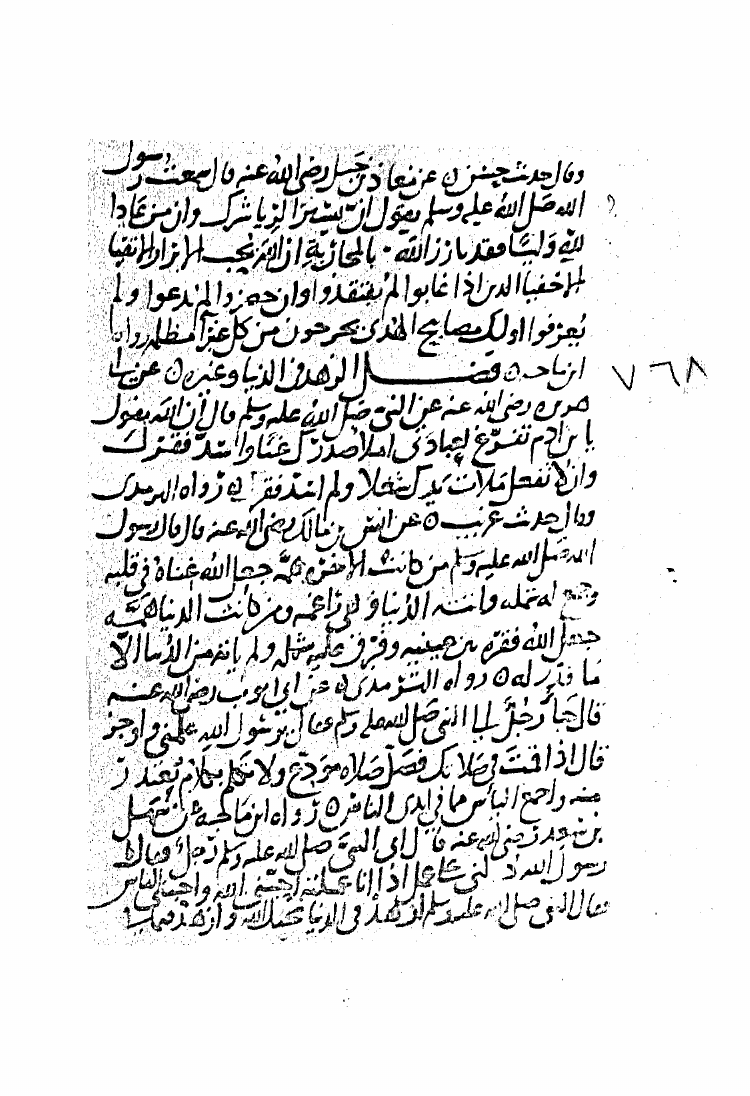 وقال حديث حسن ه عن معاذ بن جبل رضي الله عنه قال سمعت رسول
الله صلى الله عليه وسلم يقول ان يسير الريا شرك وان من عادا
لله وليا فقد بارز الله بالمحاربة ان الله يحب الابرار الاتقيا
الاخفيا الدين اذا غابوا لم يفتقدوا وان حضروا لم يدعوا ولم
يعرفوا اولئك مصابيح الهدى يخرجون من كل غبرا مظلمه رواه
ابن ماجه ه فصل الزهد في الدنيا وغيره ه عن ابي
٧٦٨
هريره رضي الله عنه عن النبي صلى الله عليه وسلم قال ان الله يقول
يا بن ادم تفرغ لعبادتي املا صدرك غنا واسد فقرك
وان لا تفعل ملات يدك شغلا ولم اسد فقرك رواه الترمدي
وقال حديث غريب ه عن انس بن مالك رضي الله عنه قال قال رسول
الله صلى الله عليه وسلم من كانت الاخره همه جعل الله غناه في قلبه
وجمع له شمله واتته الدنيا وهي راغمه ومن كانت الدنيا همه
جعل الله فقره بين عينيه وفرق عليه شمله ولم ياته من الدنيا الا
ما قدر له ه رواه الترمدي ه عن ابي ايوب رضي الله عنه
قال جا رجل الى النبي صلى الله عليه وسلم فقال يرسول الله علمني واوجز
قال اذا قمت في صلاتك فصل صلاه مودع ولا تكلم بكلام تعتذر
منه واجمع الياس مما في ايدي الناس ه رواه ابن ماجه عن سهل
بن سعد رضي الله عنه قال اتى النبي صلى الله عليه وسلم رجل فقال يا
رسول الله دلني على عمل اذا انا عملته احبني الله واحبني الناس
فقال النبي صلى الله عليه وسلم ازهد في الدنيا يحبك الله وازهد فيما